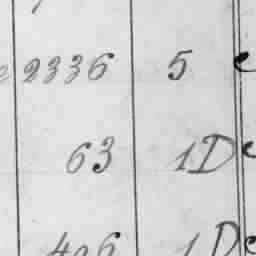 2336 5
63 1D
406 1D